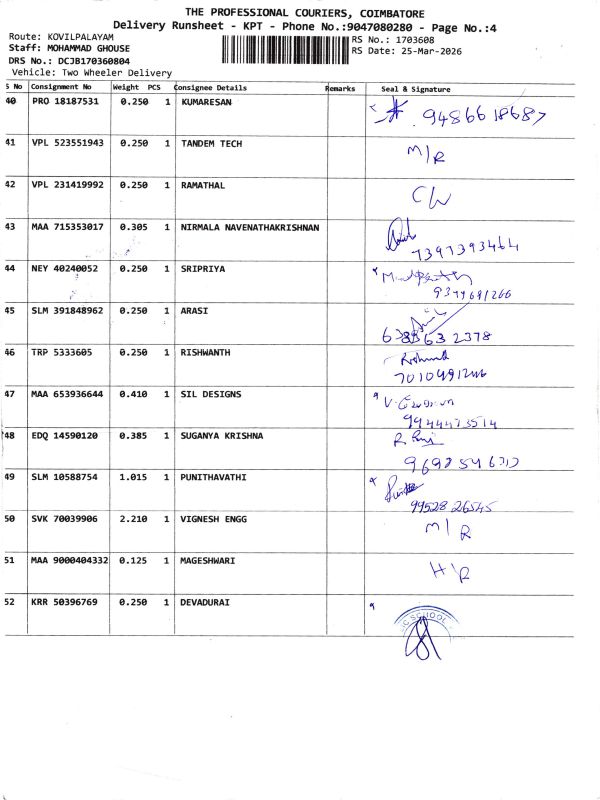 THE PROFESSIONAL COURIERS, COIMBATORE
Delivery Runsheet - KPT - Phone No.:9047080280 - Page No.:4
Route: KOVILPALAYAM
RS No.: 1703608
Staff: MOHAMMAD GHOUSE
RS Date: 25-Mar-2026
DRS No.: DCJB170360804
Vehicle: Two Wheeler Delivery
S No Consignment No Weight PCS Consignee Details Remarks Seal & Signature
40 PRO 18187531 0.250 1 KUMARESAN 9486618687
41 VPL 523551943 0.250 1 TANDEM TECH M/R
42 VPL 231419992 0.250 1 RAMATHAL
43 MAA 715353017 0.305 1 NIRMALA NAVENATHAKRISHNAN
7397393464
44 NEY 40240052 0.250 1 SRIPRIYA
45 SLM 391848962 0.250 1 ARASI
46 TRP 5333605 0.250 1 RISHWANTH
47 MAA 653936644 0.410 1 SIL DESIGNS
9944473514
48 EDQ 14590120 0.385 1 SUGANYA KRISHNA
49 SLM 10588754 1.015 1 PUNITHAVATHI
9952826545
50 SVK 70039906 2.210 1 VIGNESH ENGG M/R
51 MAA 9000404332 0.125 1 MAGESHWARI H/R
52 KRR 50396769 0.250 1 DEVADURAI
SCHOOL